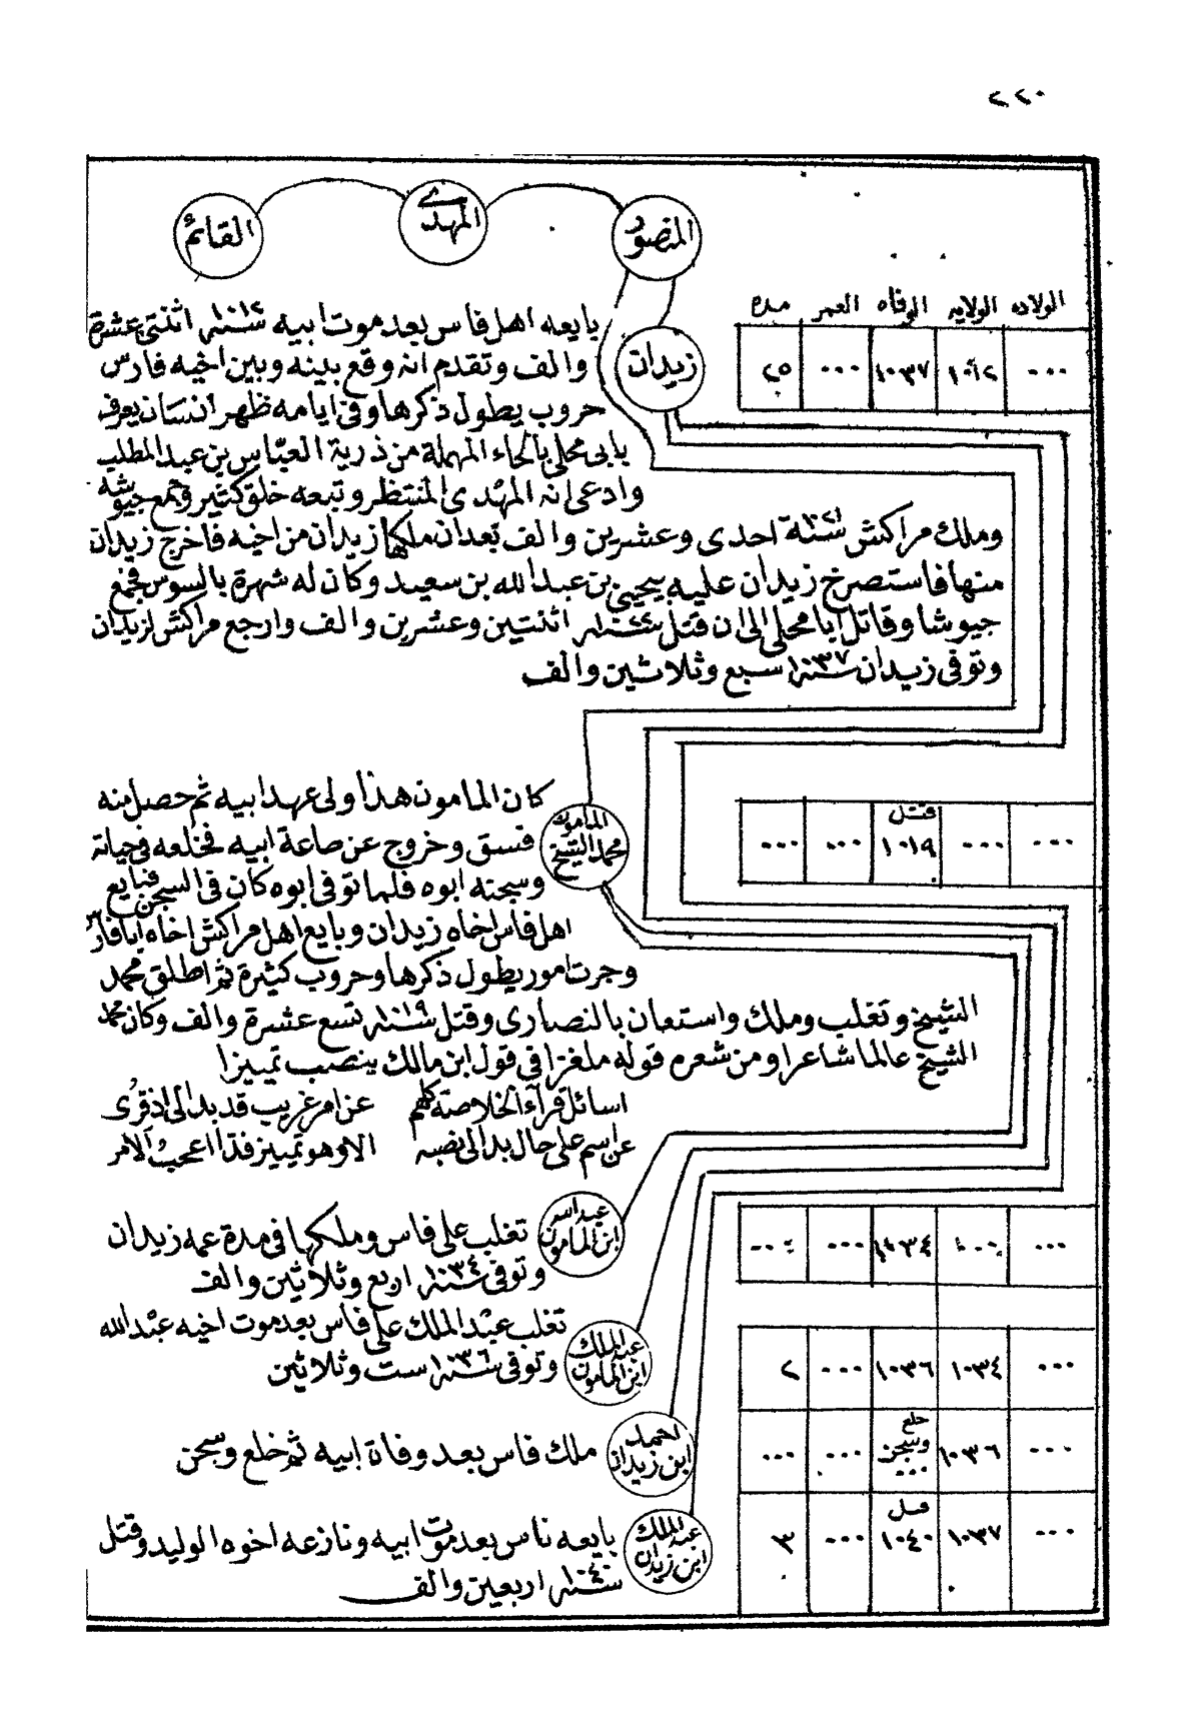 ٢٢٠
المنصور المهدى القائم
الولاده الولايه الوفاه العمر مدة
زيدان
٠٠٠ ١٠١٢ ١٠٣٧ ٠٠٠ ٢٥
بايعه اهل فاس بعد موت ابيه سنة ١٠١٢ اثنتى عشرة
والف وتقدم انه وقع بينه وبين اخيه فارس
حروب يطول ذكرها وفى ايامه ظهر انسان يعرف
بابى محلى بالحاء المهملة من ذرية العباس بن عبد المطلب
وادعى انه المهدى المنتظر وتبعه خلق كثير وجمع جيوشه
وملك مراكش سنة ١٠٢١ احدى وعشرين والف بعد ان ملكها زيدان من اخيه فاخرج زيدان
منها فاستصرخ زيدان عليه بيحيى بن عبد الله بن سعيد وكان له شهرة بالسوس فجمع
جيوشا وقاتل ابا محلى الى ان قتل سنة ١٠٢٢ اثنتين وعشرين والف وارجع مراكش لزيدان
وتوفى زيدان سنة ١٠٣٧ سبع وثلاثين والف
المامون
محمد الشيخ
٠٠٠ ٠٠٠ قتل ١٠١٩ ٠٠٠ ٠٠٠
كان المامون هذا ولى عهد ابيه ثم حصل منه
فسق وخروج عن طاعة ابيه فخلعه فى حياته
وسجنه ابوه فلما توفى ابوه كان فى السجن فبايع
اهل فاس اخاه زيدان وبايع اهل مراكش اخاه ابا فارس
وجرت امور يطول ذكرها وحروب كثيرة ثم اطلق محمد
الشيخ وتغلب وملك واستعان بالنصارى وقتل سنة ١٠١٩ تسع عشرة والف وكان محمد
الشيخ عالما شاعرا ومن شعره قوله ملغزا فى قول ابن مالك ينصب تمييزا
اسائل قراء الخلاصة كلهم عن امر غريب قد بدا لى اذ قرى
عن اسم على حال بدا لى نصبه الا وهو تمييز فذا اعجب الامر
عبد الله
ابن المامون
٠٠٠ ٠٠٠ ١٠٣٤ ٠٠٠ ٠٠٠
تغلب على فاس وملكها فى مدة عمه زيدان
وتوفى سنة ١٠٣٤ اربع وثلاثين والف
عبد الملك
ابن المامون
٠٠٠ ١٠٣٤ ١٠٣٦ ٠٠٠ ٢
تغلب عبد الملك على فاس بعد موت اخيه عبد الله
وتوفى سنة ١٠٣٦ ست وثلاثين
احمد
ابن زيدان
٠٠٠ ١٠٣٦ خلع وسجن ٠٠٠ ٠٠٠ ٠٠٠
ملك فاس بعد وفاة ابيه ثم خلع وسجن
عبد الملك
ابن زيدان
٠٠٠ ١٠٣٧ قتل ١٠٤٠ ٠٠٠ ٣
بايعه ناس بعد موت ابيه ونازعه اخوه الوليد وقتل
سنة ١٠٤٠ اربعين والف